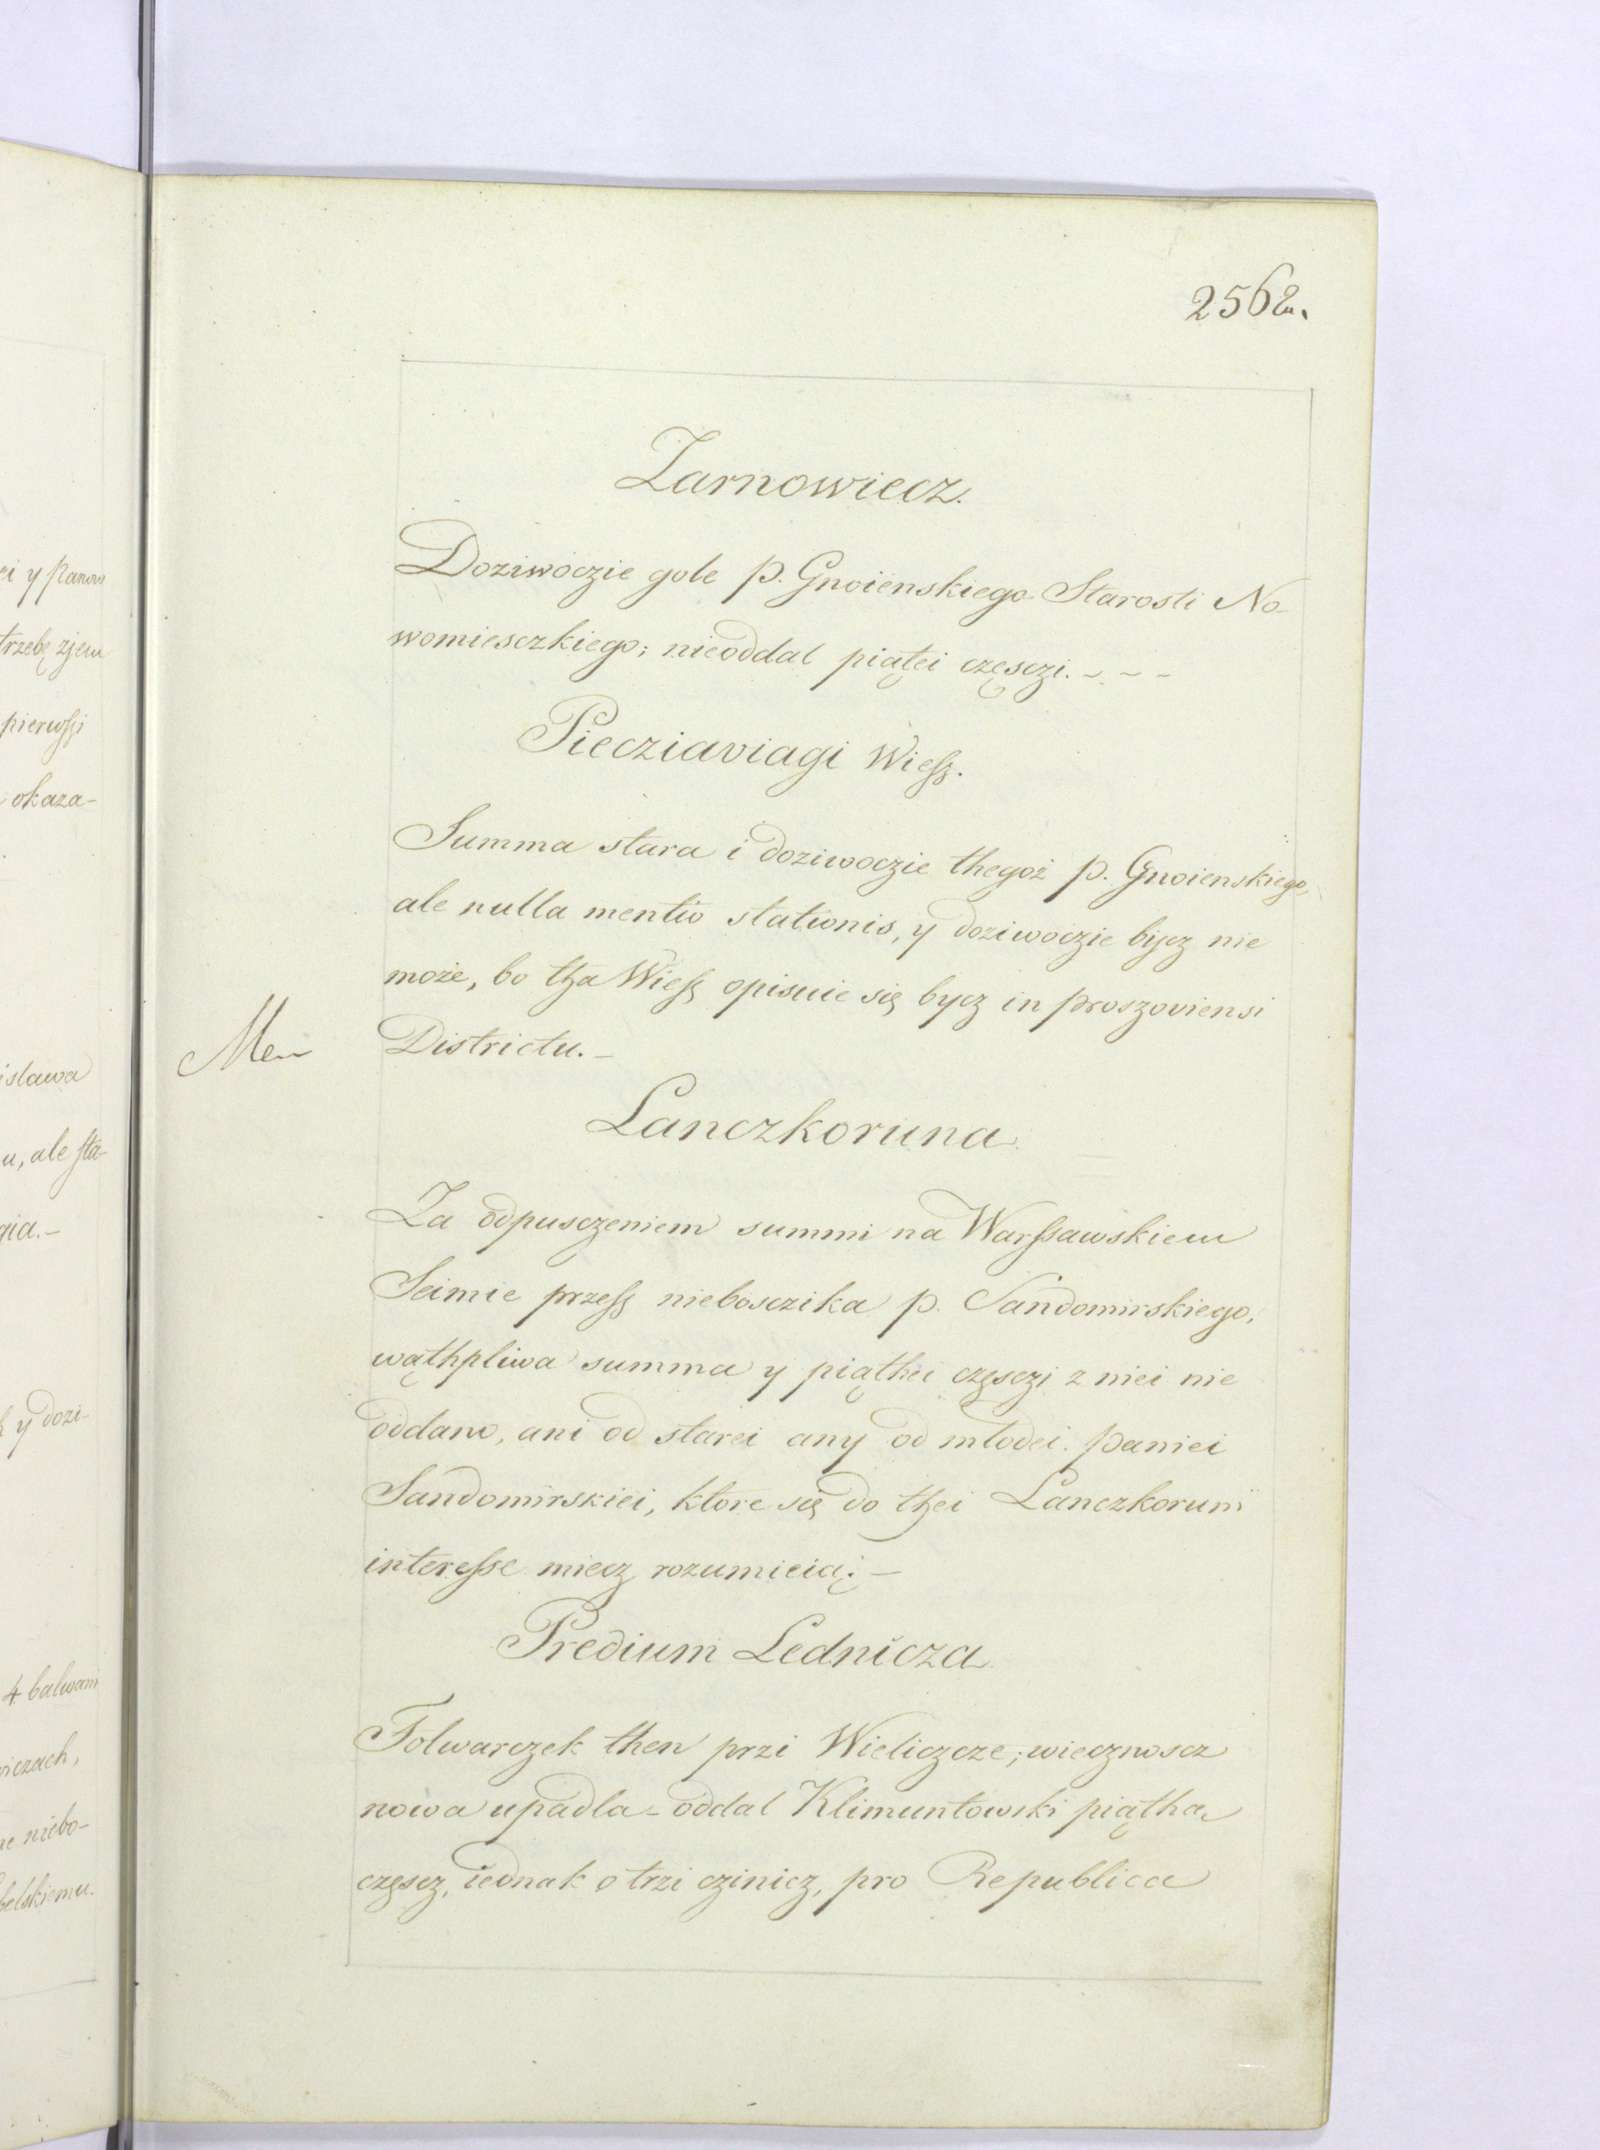 2562.
Zarnowiecz.
Doziwoczie gole p. Gnoienskiego Starosti No-
womiesczkiego; nieoddal piątei częsczi. - - -
Piecziaviagi Wiess.
Summa stara i doziwoczie thegoż p. Gnoienskiego,
ale nulla mentio stationis, y doziwoczie bijcz nie
może, bo tha Wiess opisuie się bycz in proszoviensi
Districtu. -
Lanczkoruna
Za odpusczeniem summi na Warssawskiem
Seimie przess niebosczika p. Sandomirskiego,
wąthpliwa summa y piąthei częsczi z niei nie
oddano, ani od starei any od młodei paniei
Sandomirskiei, ktore się do thei Lanczkoruni
interesse miecz rozumieią; -
Predium Lednicza
Folwarczek then przi Wieliczcze; wiecznoscz
nowa upadla - oddal Klimuntowski piątha
częscz, iednak o trzi czinicz, pro Republica
ei y panow
trzebę zjem
pierwssi
okaza-
islawa
u, ale sta-
gia. -
y dozi-
4 balwani
niczach,
ne niebo-
belskiemu.